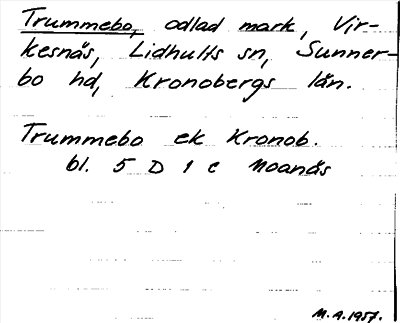 Trummebo, odlad mark, Vir-
kesnäs, Lidhults sn, Sunner-
bo hd, Kronobergs län.
Trummebo ek Kronob.
bl. 5 D 1 c Moanäs
M.A.1957.